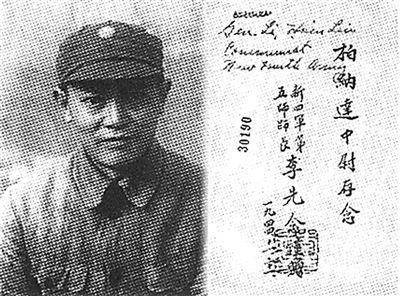 Gen. Li, Hsien
Communist
New Fourth Army
柏納達中尉存念
新四軍第
五師師長
李先念
一九四
30190